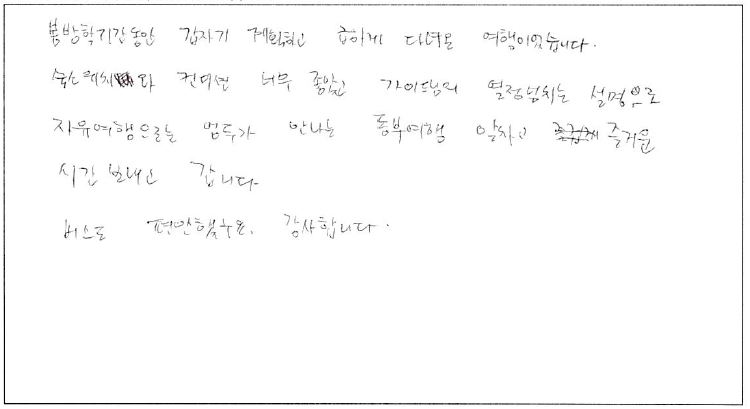 봄방학기간동안 갑자기 계획하고 급하게 다녀온 여행이었습니다.
숙소 위치와 컨디션 너무 좋았고 가이드님의 열정넘치는 설명으로
자유여행으로는 엄두가 안나는 동부여행 알차고 즐거운
시간 보내고 갑니다.
버스도 편안했구요. 감사합니다.